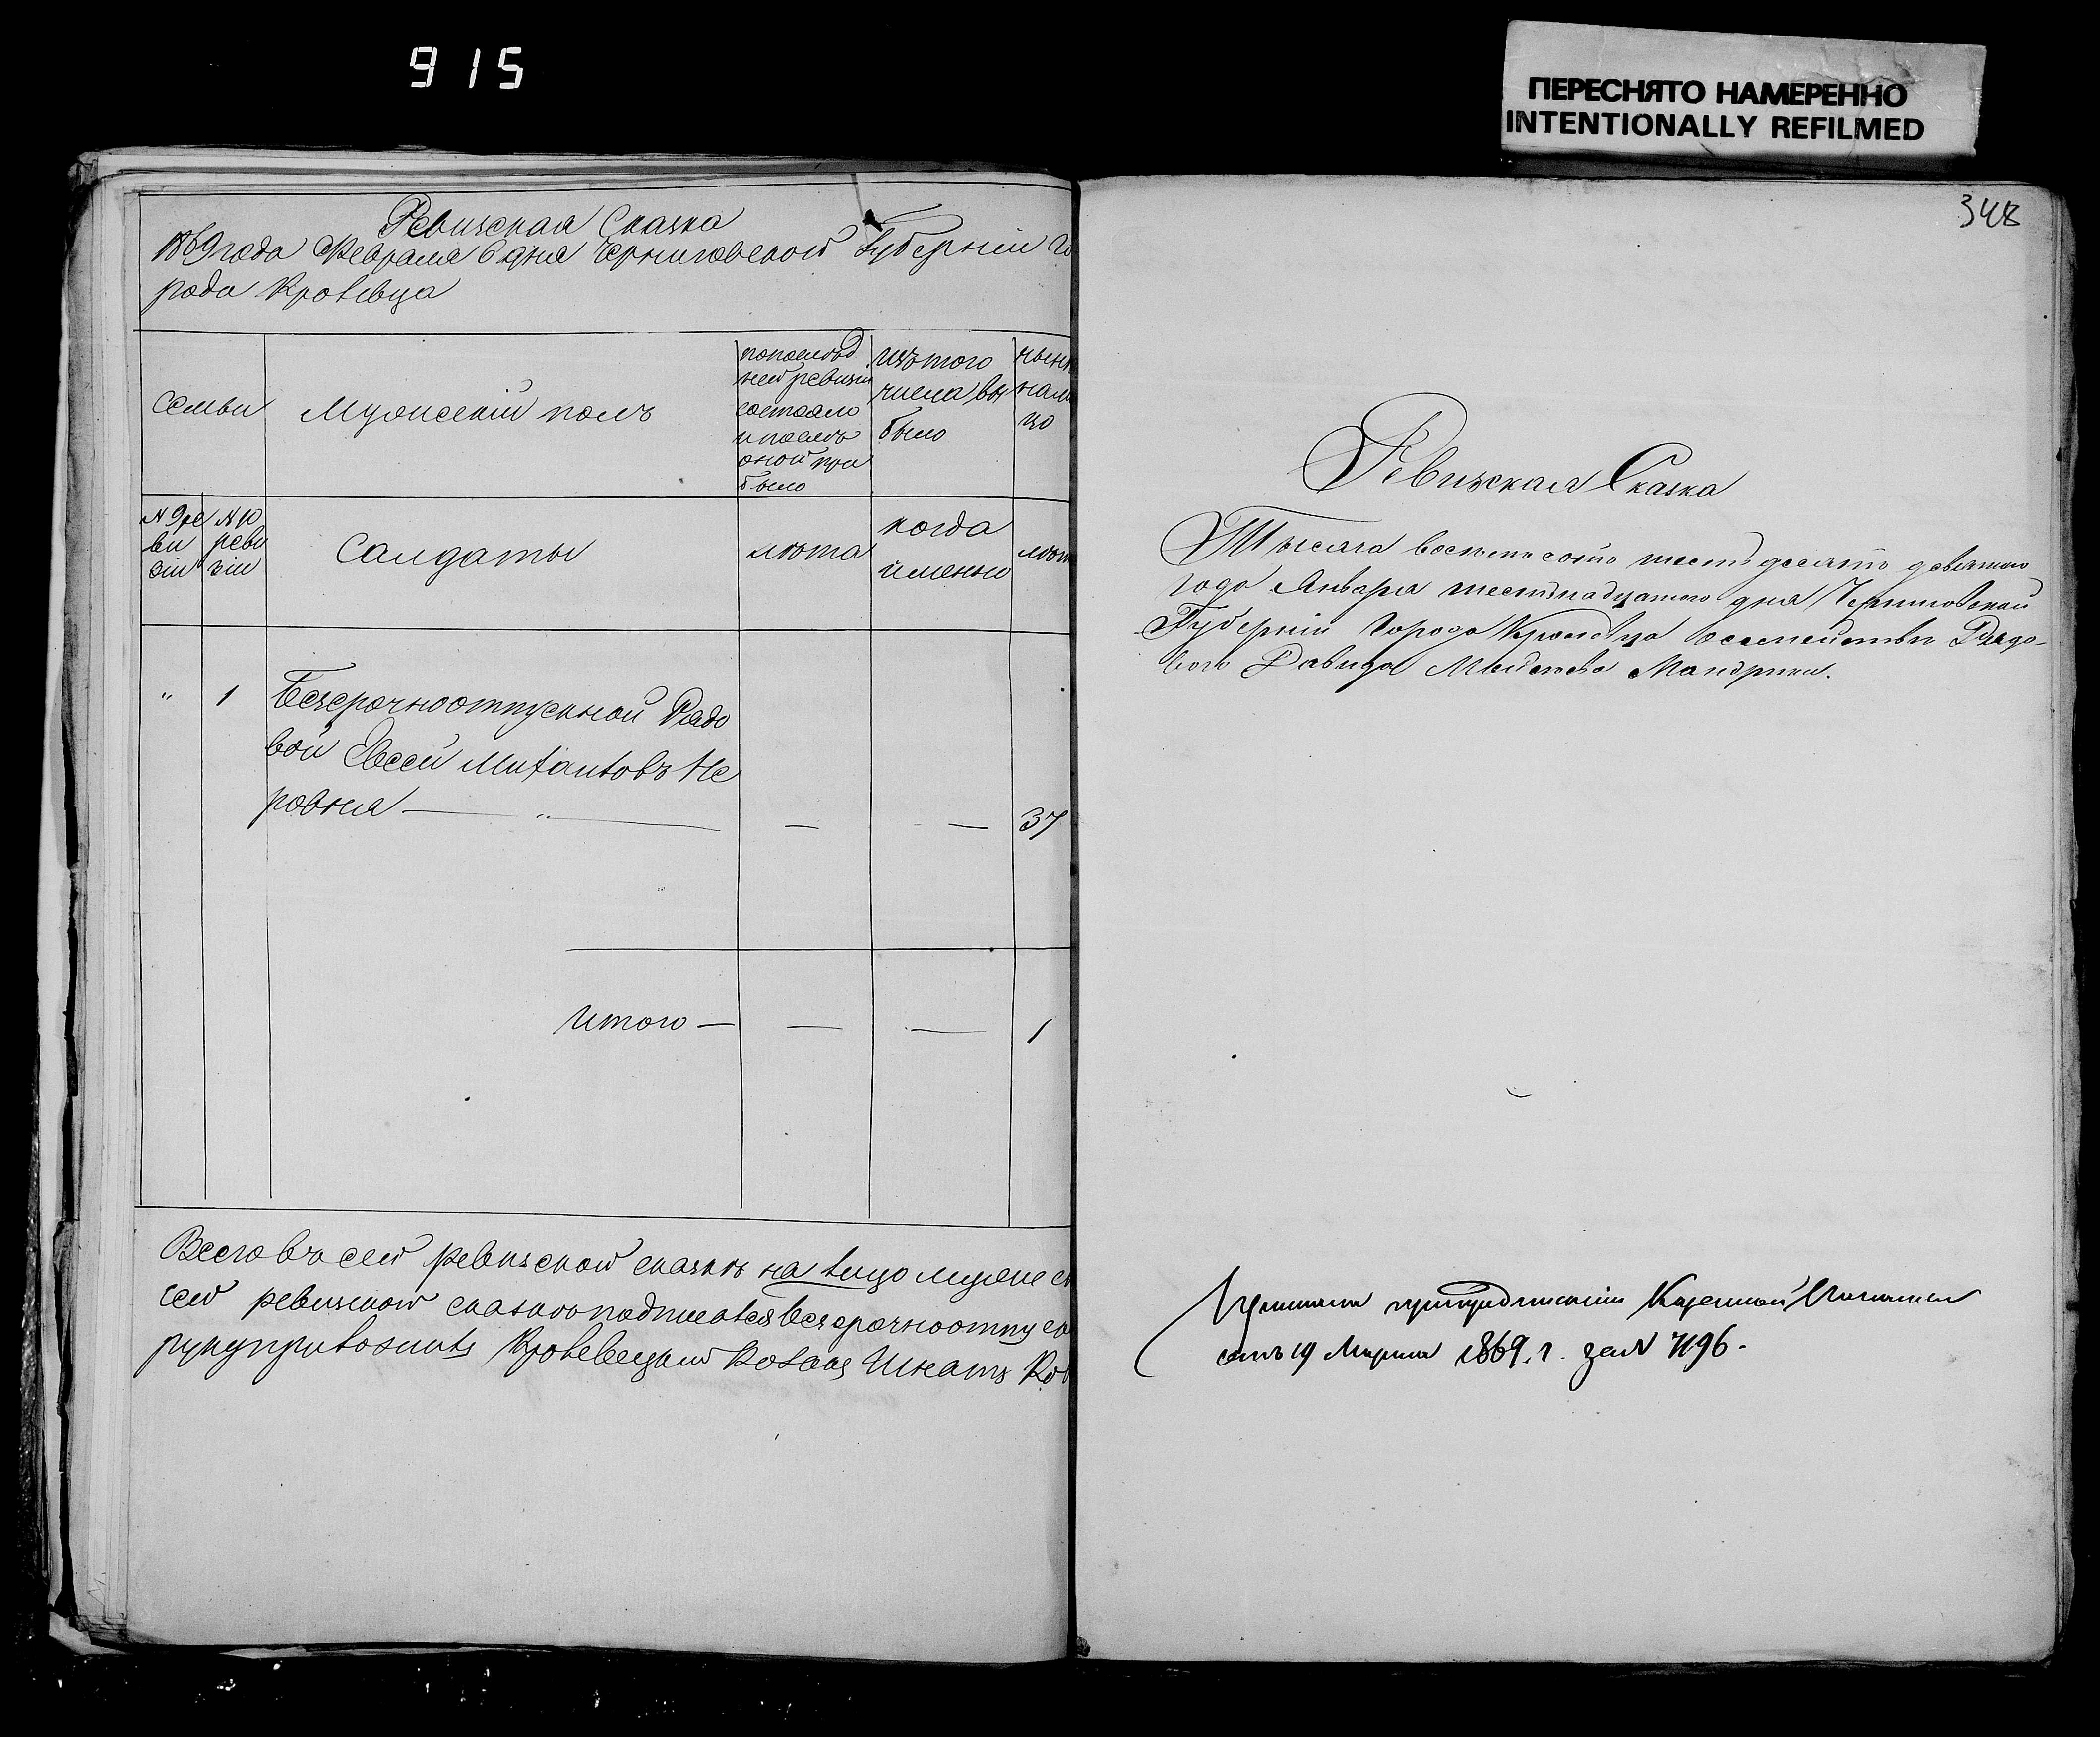 915
ПЕРЕСНЯТО НАМЕРЕННО
INTENTIONALLY REFILMED
Ревизская Сказка
1869 года Февраля 6 дня Черниговской Губерніи Го
рода Кролевца
Семьи
Мужескій полъ
попослѣд
ней ревизіи
состояло
и послѣ
оной при
было
изътого
числа вы
было
нынѣ
нали
цо
N 9 ре
ви
зіи
N 10
реви
зіи
Салдаты
лѣта
когда
именно
лѣт
" 1 Безсрочноотпускной Рядо
вой Евсей Михайловъ Не
ровня — " — — — 37
Итого — — — 1
Всего въ сей ревизской сказкѣ на лицо мужеск
сей ревизской сказкѣ подписался безсрочноотпуск
руку приложилъ Кролевецкій Козакъ Игнатъ
348
Ревизская Сказка
Тысяча восемь сотъ шестьдесятъ девятого
года Января шестнадцатого дня Черниговской
Губерніи Города Кролевца о семействѣ Рядо-
вого Давида Мандрики.
предписанію Казенной Палаты
отъ 19 Марта 1869. г. за N 7196.